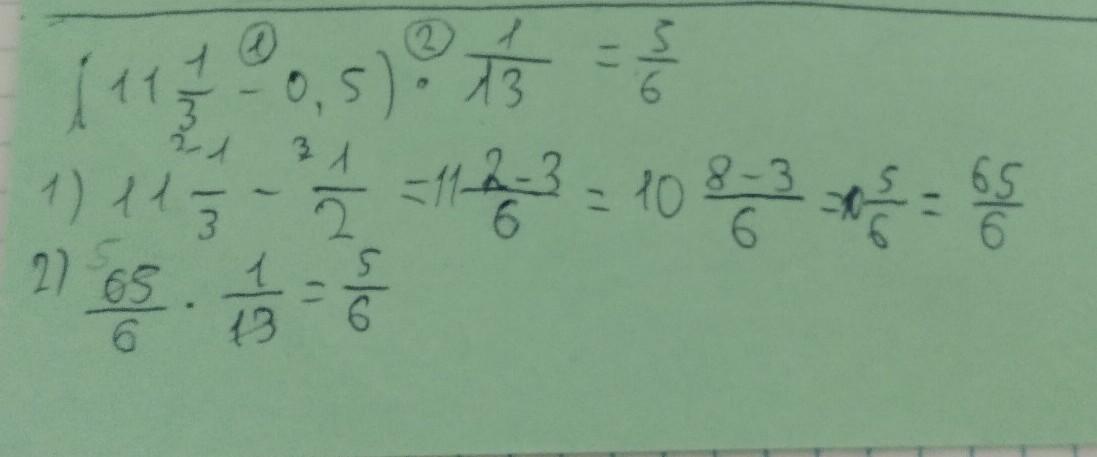 (11 1/3 ① - 0,5) ② · 1/13 = 5/6
1) 11 1/3 ² - 1/2 ³ = 11 2-3/6 = 10 8-3/6 = 10 5/6 = 65/6
2) 65/6 ⁵ · 1/13 = 5/6